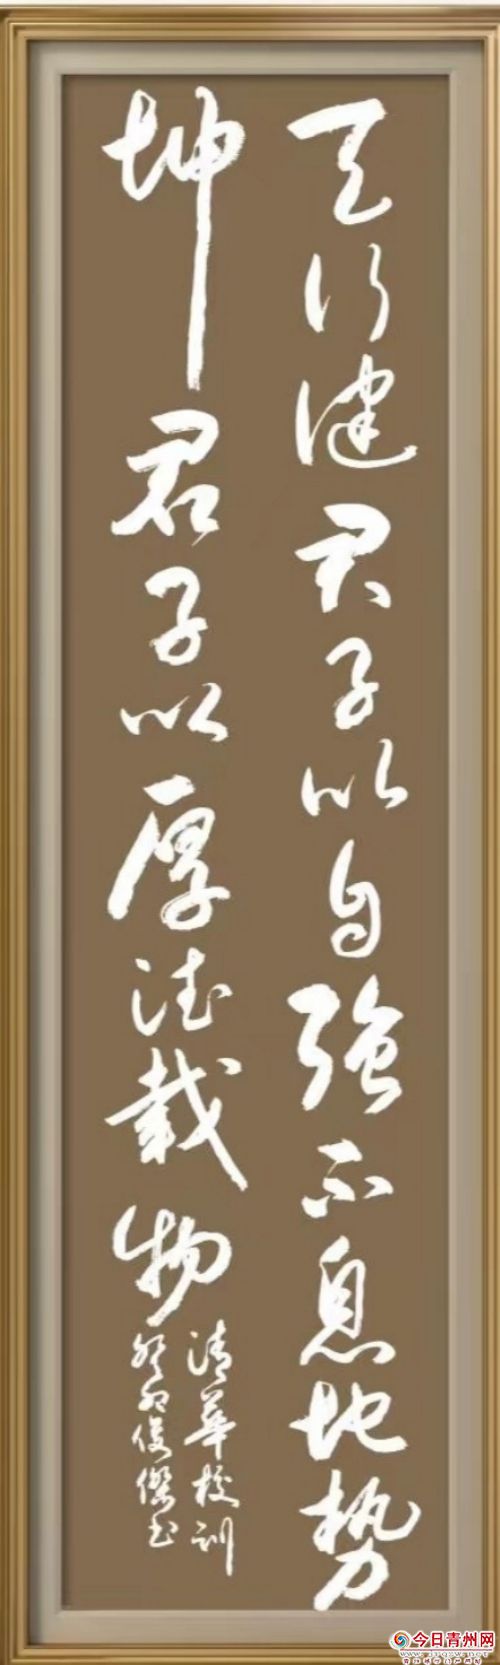 天行健君子以自强不息地势
坤君子以厚德载物
清華校训
癸卯俊傑书
今日青州网